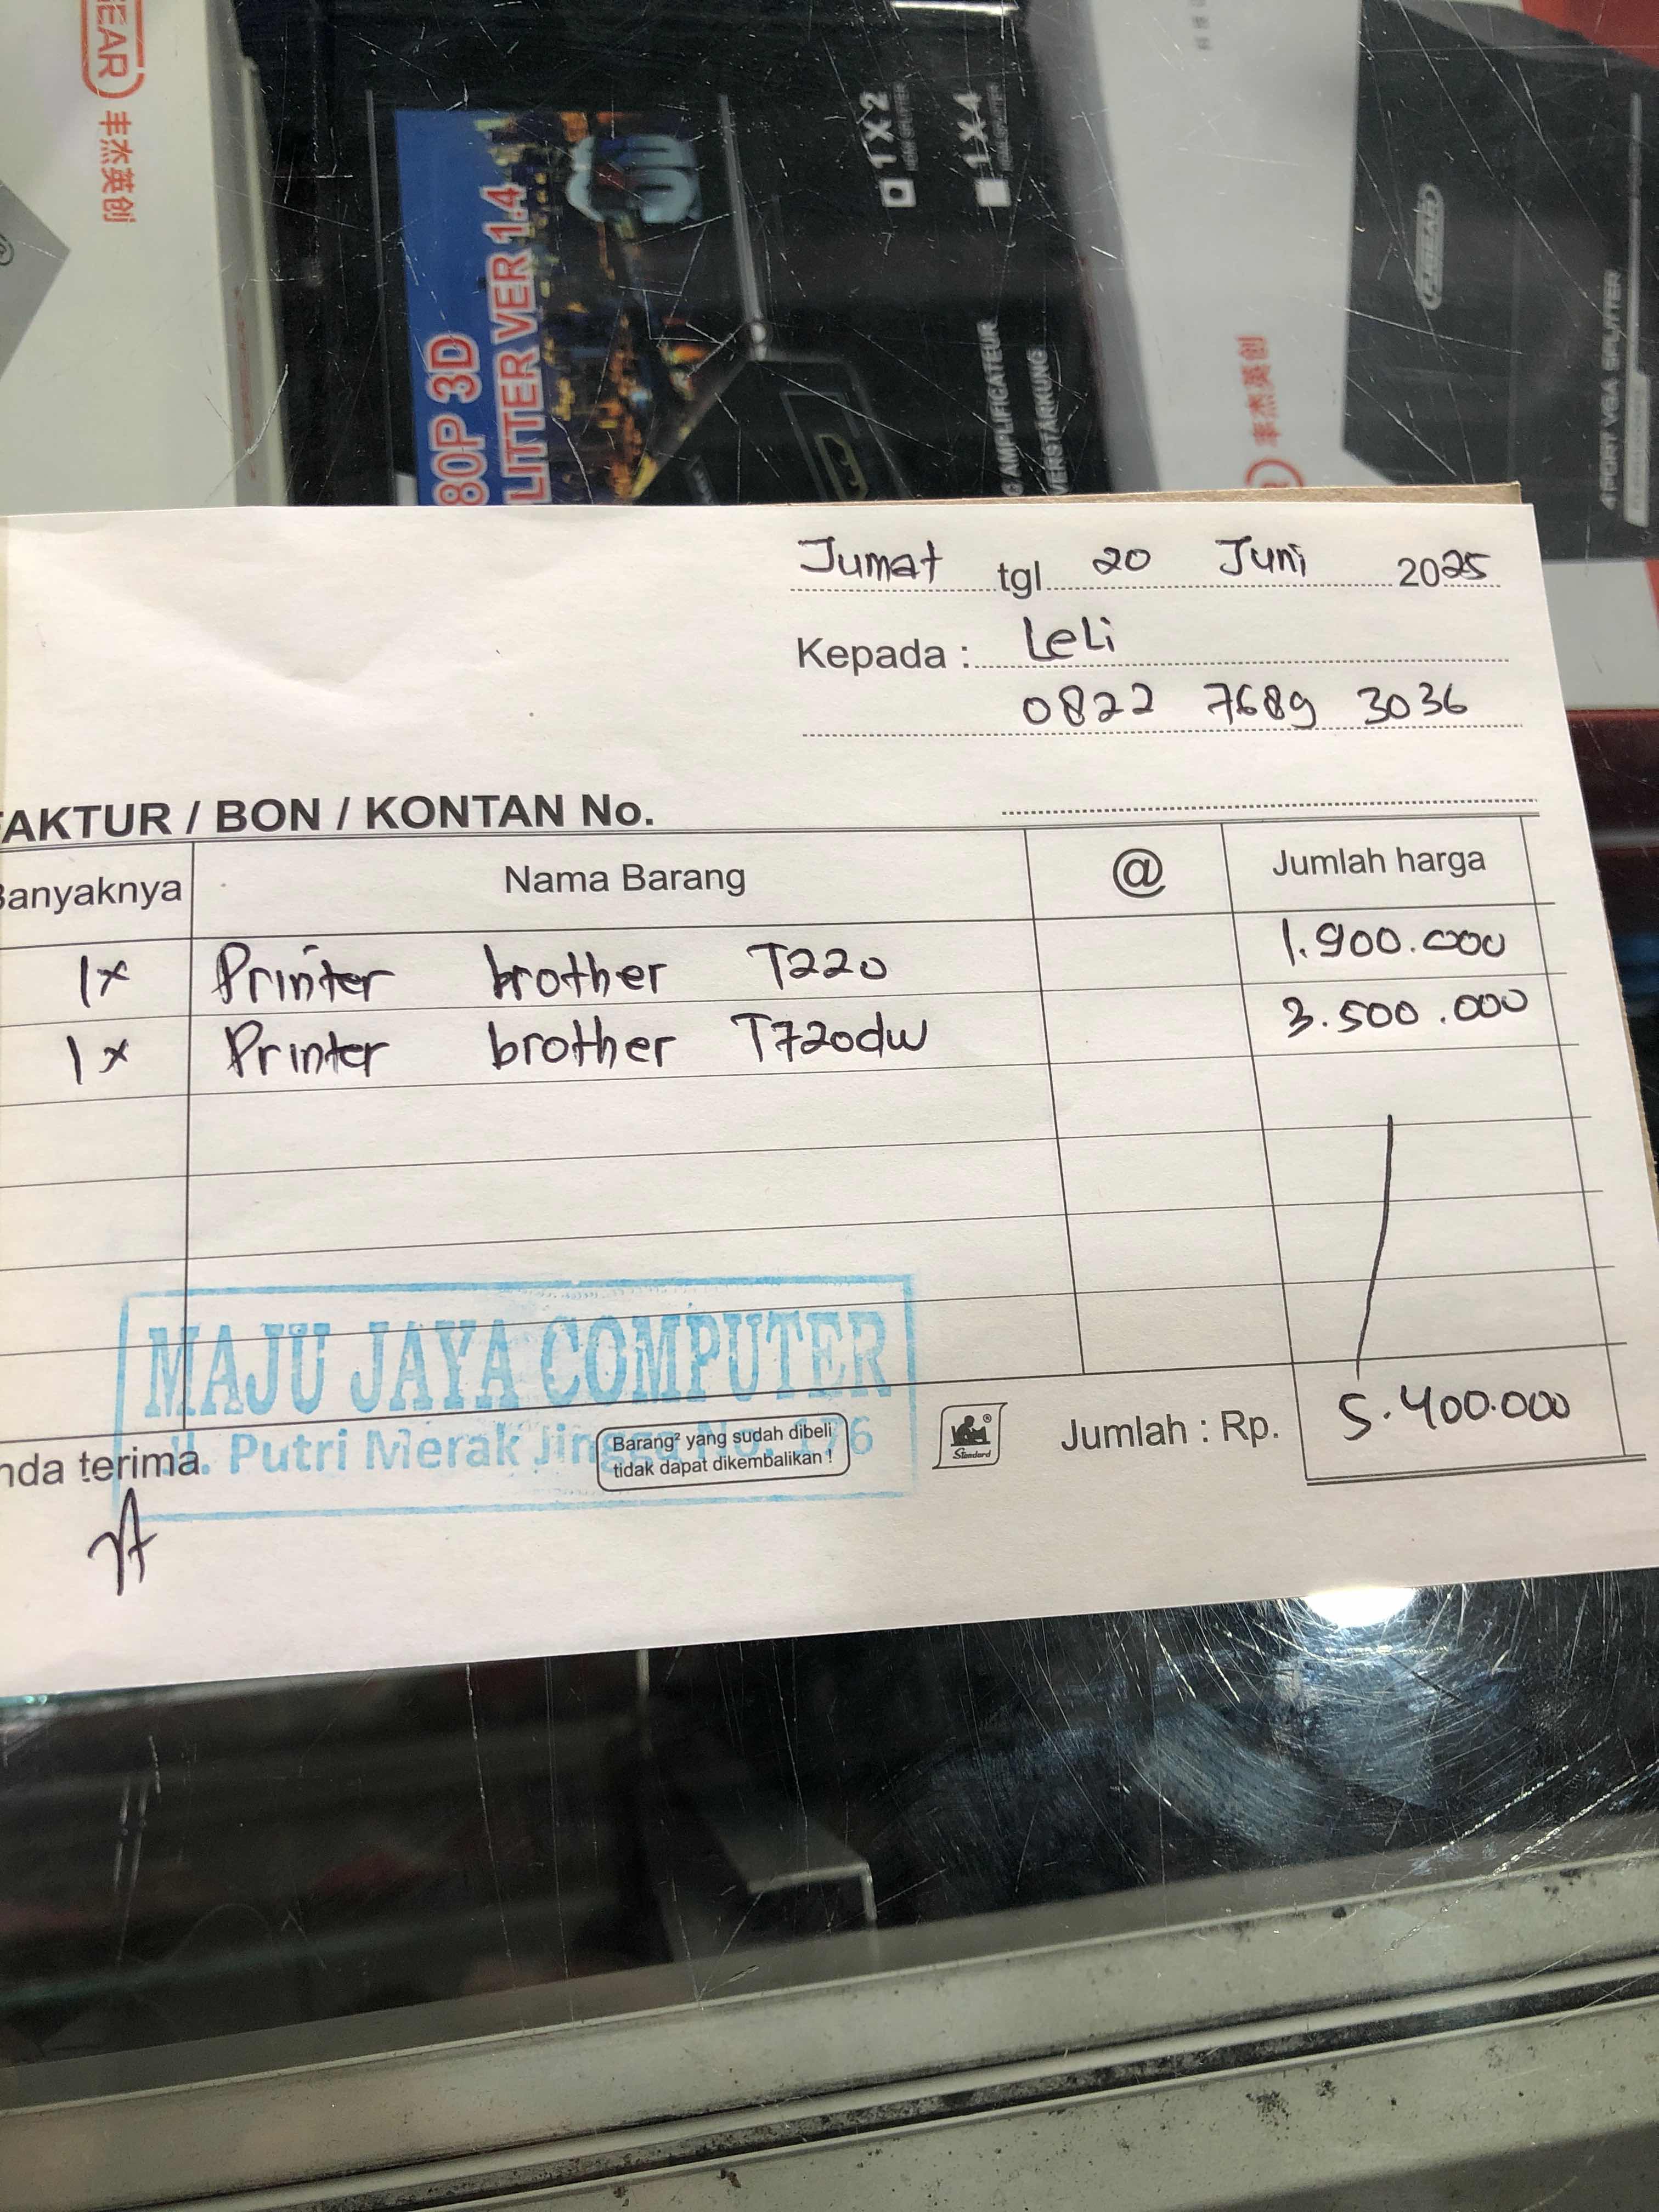 EAR 丰杰英创
80P 3D
LITTER VER 1.4
1X2
1X4
G AMPLIFICATEUR
VERSTÄRKUNG
丰杰英创
FJGEAR
4 PORT VGA SPLITTER
Jumat tgl 20 Juni 2025
Kepada : Leli
0822 7689 3036
FAKTUR / BON / KONTAN No.
Banyaknya Nama Barang @ Jumlah harga
1x Printer brother T220 1.900.000
1x Printer brother T720dw 3.500.000
MAJU JAYA COMPUTER
Jl. Putri Merak Jingga No. 176
nda terima.
Barang² yang sudah dibeli
tidak dapat dikembalikan !
Standard
Jumlah : Rp. 5.400.000